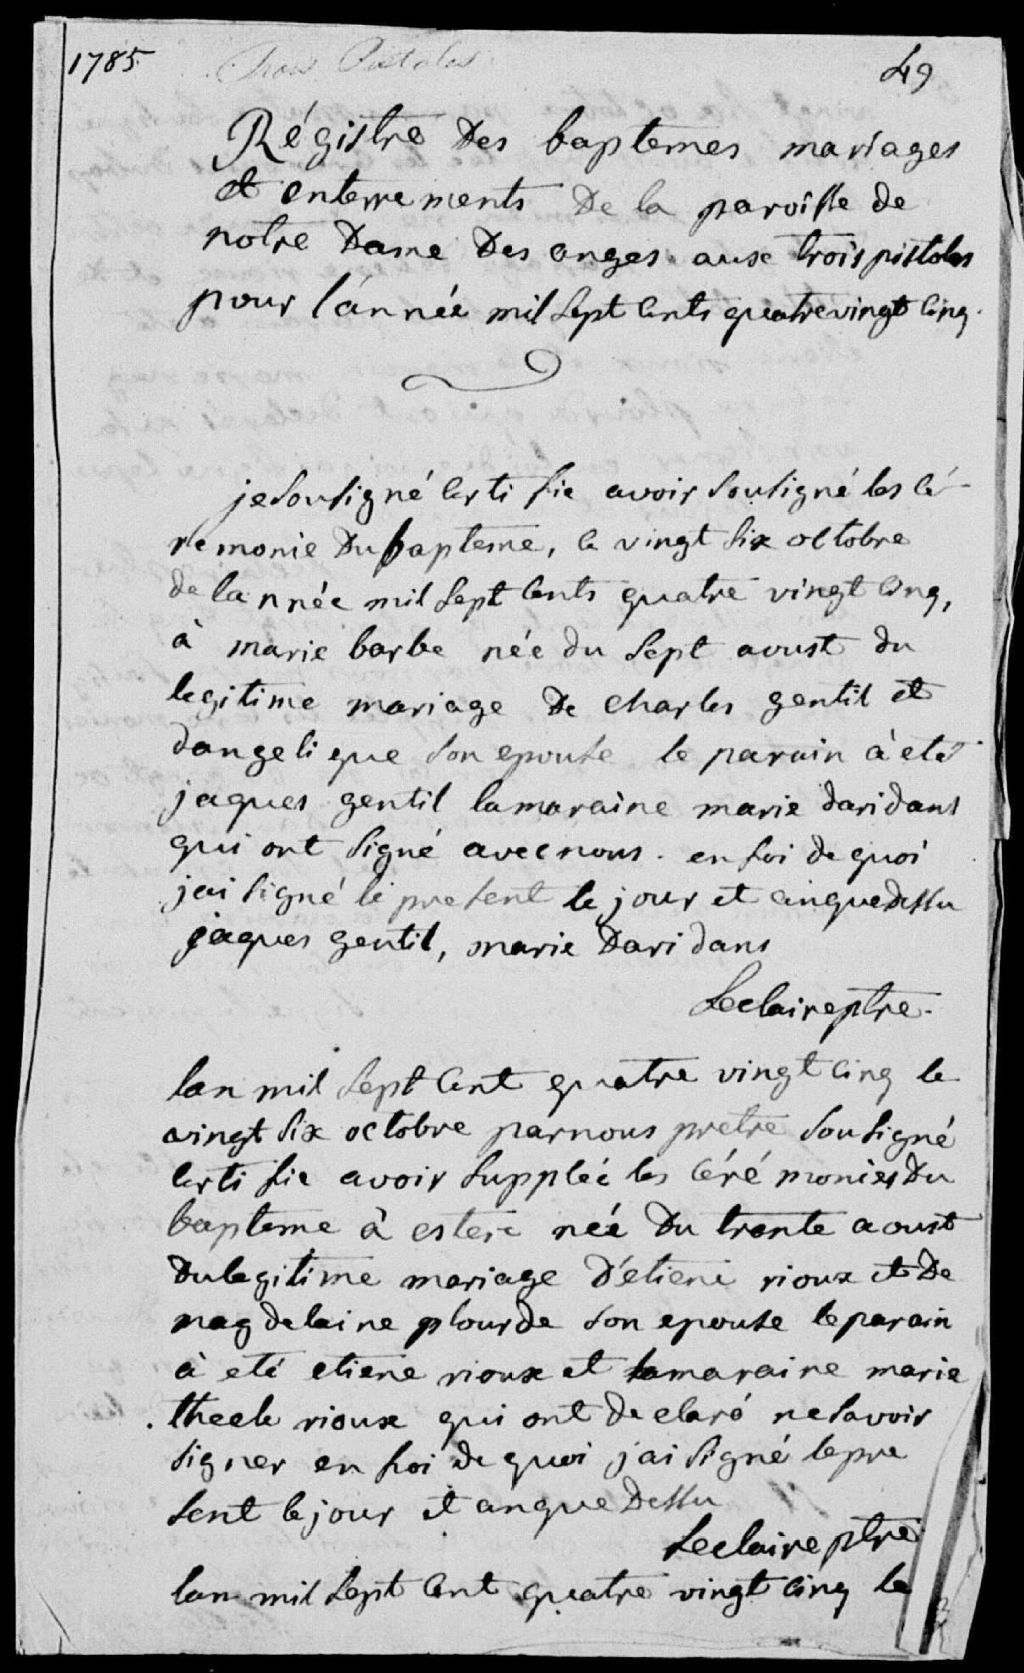 1785. Trois Pistoles 49
Régistre Des baptemes mariages
et enterrements De la paroisse de
notre Dame Des anges aux trois pistoles
pour l'année mil sept cents quatre vingt cinq.
je sousigné certi fie avoir sousigné les cé-
remonie Du bapteme, le vingt six octobre
de la nnée mil sept cents quatre vingt cinq,
à marie barbe née du sept aoust du
legitime mariage De charles gentil et
dangelique son epouse le parain à eté
jaques gentil la maraine marie daridans
qui ont signé avec nous. en foi de quoi
jai signé le present le jour et anque dessu
jaques gentil, marie Daridans
Leclaire ptre.
lan mil sept cent quatre vingt cinq le
vingt six octobre par nous pretre sousigné
certi fie avoir supplée les céré monies Du
bapteme à estere née Du trente aoust
Du legitime mariage D'etiene rioux et De
magdelaine plourde son epouse le parain
à eté etiene rioux et la maraine marie
theele rioux qui ont declaré ne savoir
signer en foi de quoi j'ai signé le pre
sent le jour et anque Dessu
Leclaire ptre
lan mil sept cent quatre vingt cinq le